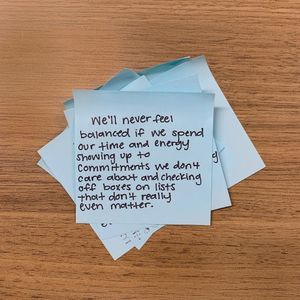 We'll never feel
balanced if we spend
our time and energy
showing up to
commitments we don't
care about and checking
off boxes on lists
that don't really
even matter.